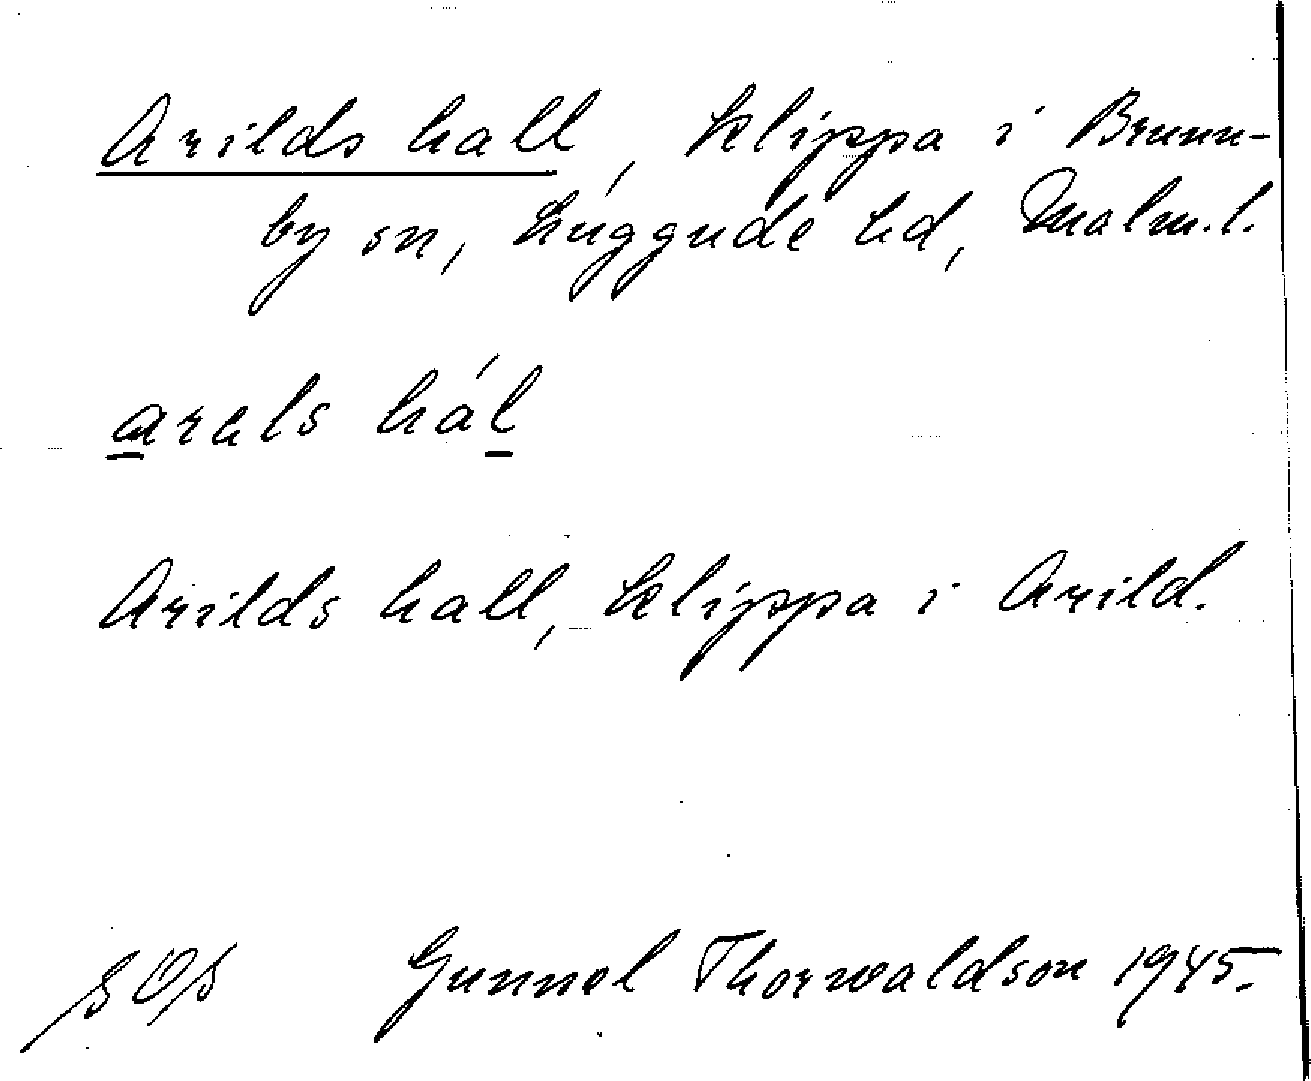 Arilds hall, klippa i Brunn-
by sn, Luggude hd, Malm.l.
arels hál
Arilds hall, klippa i Arild.
Gunnel Thorwaldson 1945.